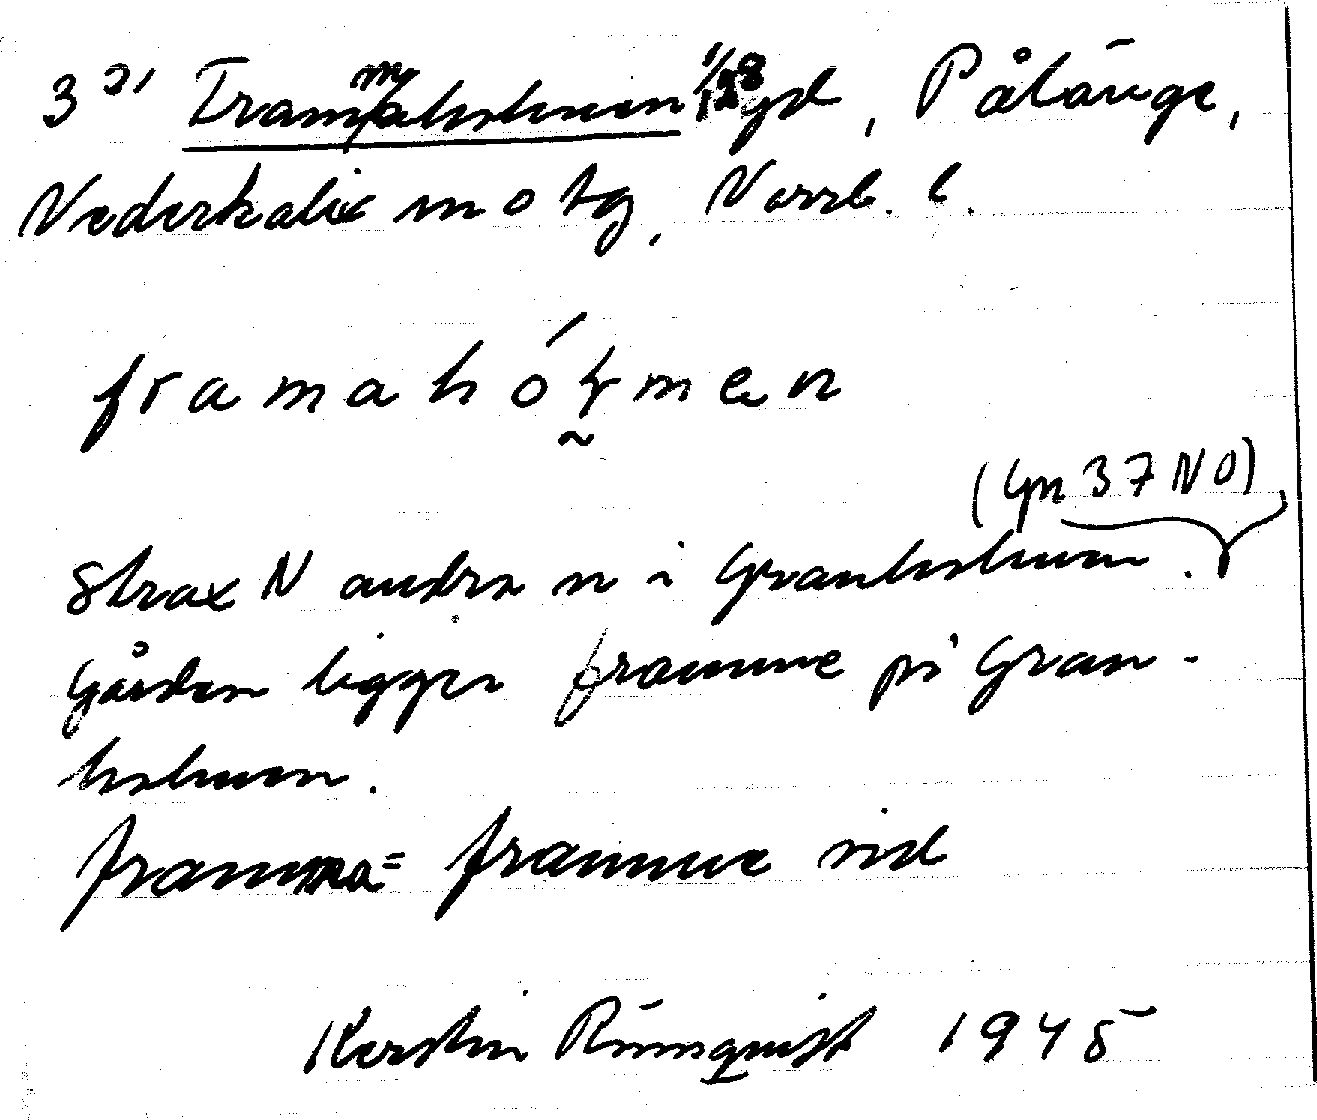 3 a' Frammaholmen 1/128 gd, Pålänge,
Nederkalix sn o tg, Norrb. l.
framahólmen
(Gn 37 NO)
Strax N andra n i Granholmen.
Gården ligger framme på Gran-
holmen.
framma = framme vid
Kerstin Rönnquist 1945